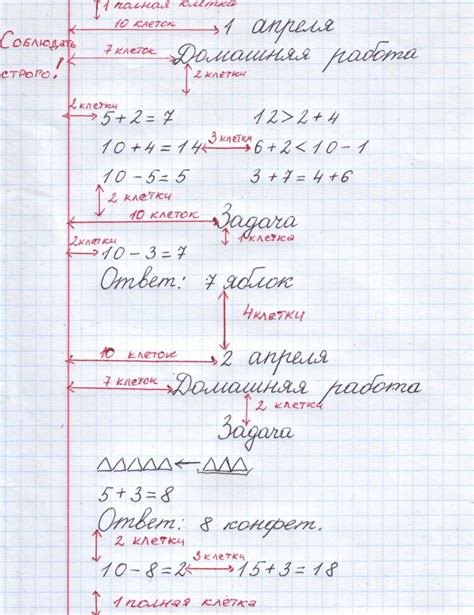 1 полная клетка
10 клеток 1 апреля
Соблюдать
строго!
7 клеток Домашняя работа
2 клетки
2 клетки 5+2=7 12>2+4
10+4=14 3 клетки 6+2<10-1
10-5=5 3+7=4+6
2 клетки
10 клеток Задача
2 клетки 1 клетка
10-3=7
Ответ: 7 яблок
4 клетки
10 клеток 2 апреля
7 клеток Домашняя работа
2 клетки
Задача
5+3=8
Ответ: 8 конфет.
2 клетки
10-8=2 3 клетки 15+3=18
1 полная клетка